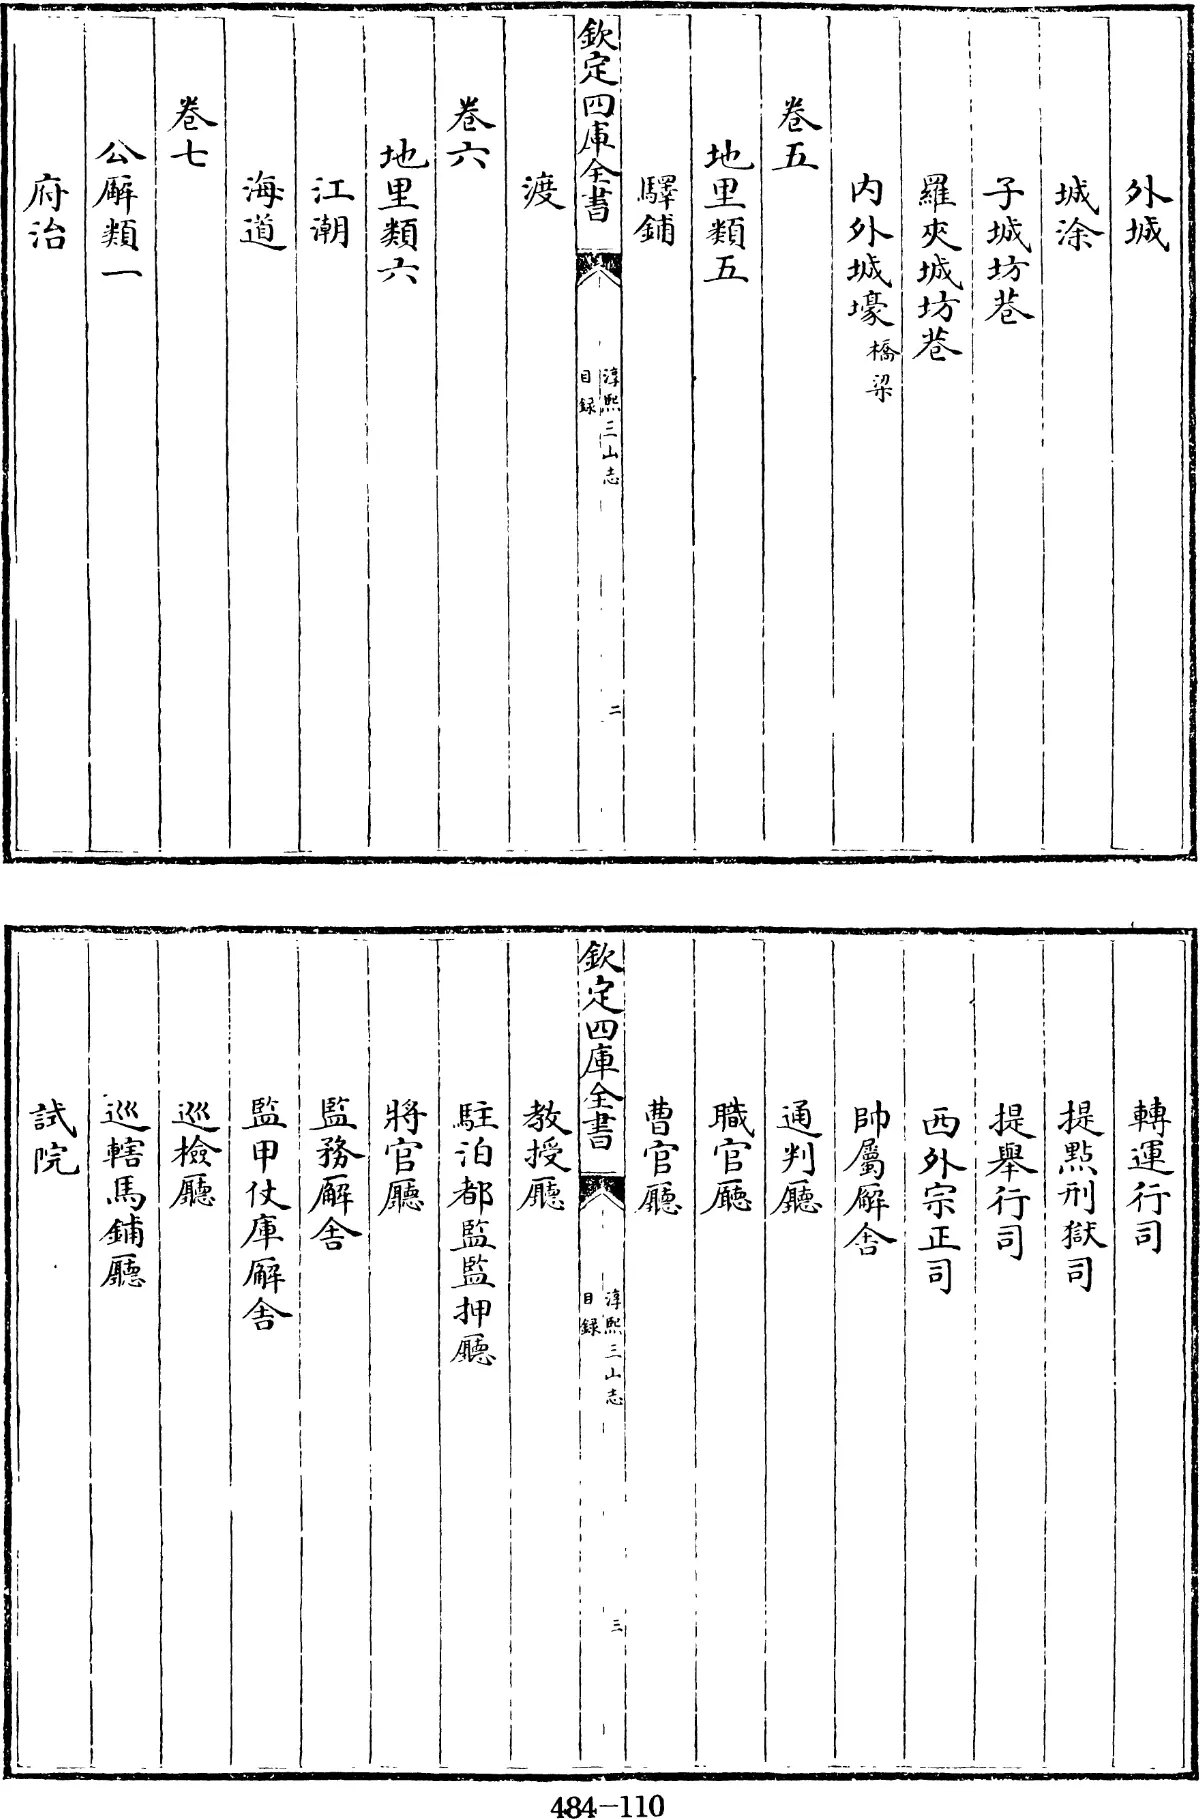 外城
城涂
子城坊巷
羅夾城坊巷
内外城壕橋梁
卷五
地里類五
驛鋪
欽定四庫全書
淳熙三山志
目録
二
渡
卷六
地里類六
江潮
海道
卷七
公廨類一
府治
轉運行司
提點刑獄司
提舉行司
西外宗正司
帥屬廨舍
通判廳
職官廳
曹官廳
欽定四庫全書
淳熙三山志
目録
三
教授廳
駐泊都監監押廳
將官廳
監務廨舍
監甲仗庫廨舍
巡檢廳
巡轄馬鋪廳
試院
484-110